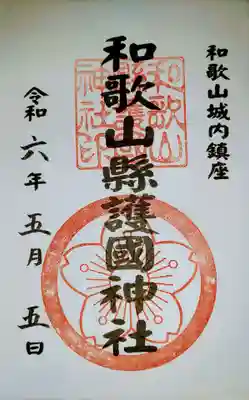 和歌山城内鎮座
和歌山縣護國神社
令和六年五月五日
和歌山
縣護國
神社印